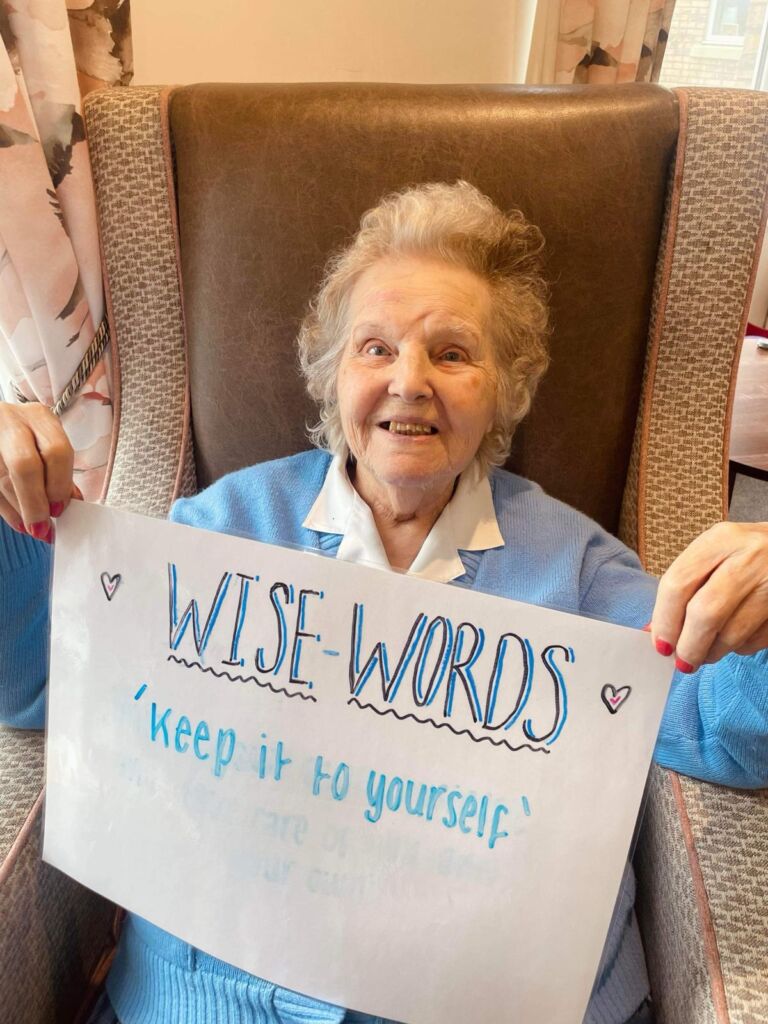 WISE-WORDS
'Keep it to yourself'